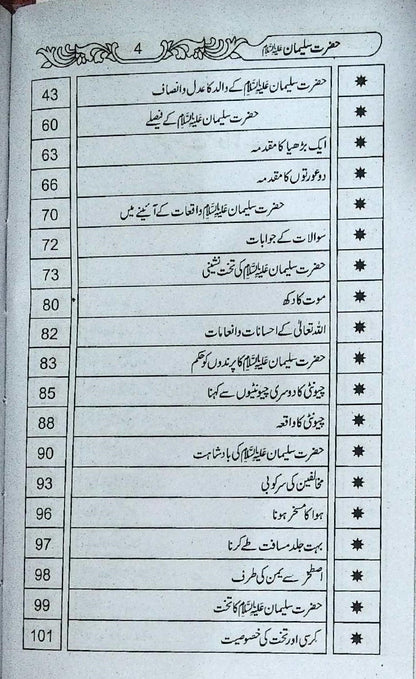 حضرت سلیمان علیہ السلام 4
حضرت سلیمان علیہ السلام کے والد کا عدل و انصاف 43
حضرت سلیمان علیہ السلام کے فیصلے 60
ایک بڑھیا کا مقدمہ 63
دو عورتوں کا مقدمہ 66
حضرت سلیمان علیہ السلام واقعات کے آئینے میں 70
سوالات کے جوابات 72
حضرت سلیمان علیہ السلام کی تخت نشینی 73
موت کا دکھ 80
اللہ تعالیٰ کے احسانات و انعامات 82
حضرت سلیمان علیہ السلام کا پرندوں کو حکم 83
چیونٹی کا دوسری چیونٹیوں سے کہنا 85
چیونٹی کا واقعہ 88
حضرت سلیمان علیہ السلام کی بادشاہت 90
مخالفین کی سرکوبی 93
ہوا کا مسخر ہونا 96
بہت جلد مسافت طے کرنا 97
اصطخر سے یمن کی طرف 98
حضرت سلیمان علیہ السلام کا تخت 99
کرسی اور تخت کی خصوصیت 101